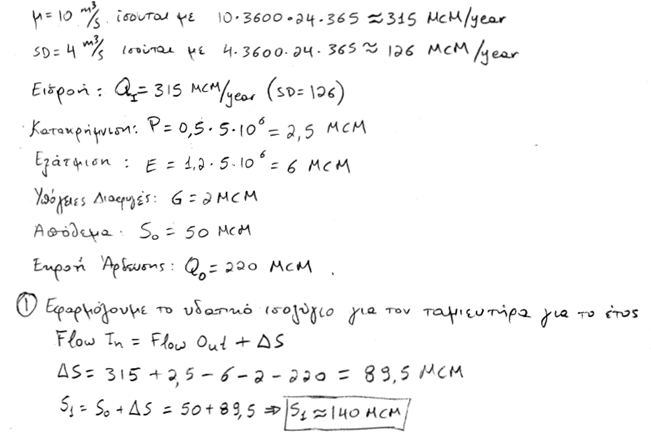 μ=10 m³/s ισούται με 10·3600·24·365 ≈ 315 MCM/year
SD=4 m³/s ισούται με 4·3600·24·365 ≈ 126 MCM/year
Εισροή: Q_I = 315 MCM/year (SD=126)
Κατακρήμνιση: P = 0,5·5·10⁶ = 2,5 MCM
Εξάτμιση: E = 1,2·5·10⁶ = 6 MCM
Υπόγειες Διαφυγές: G = 2 MCM
Απόθεμα: S₀ = 50 MCM
Εκροή Άρδευσης: Q₀ = 220 MCM.
① Εφαρμόζουμε το υδατικό ισοζύγιο για τον ταμιευτήρα για το έτος
Flow In = Flow Out + ΔS
ΔS = 315 + 2,5 - 6 - 2 - 220 = 89,5 MCM
S₁ = S₀ + ΔS = 50 + 89,5 ⇒ S₁ ≈ 140 MCM